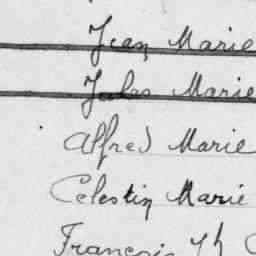 Jean Marie
Jules Marie
Alfred Marie
Celestin Marie
François Th